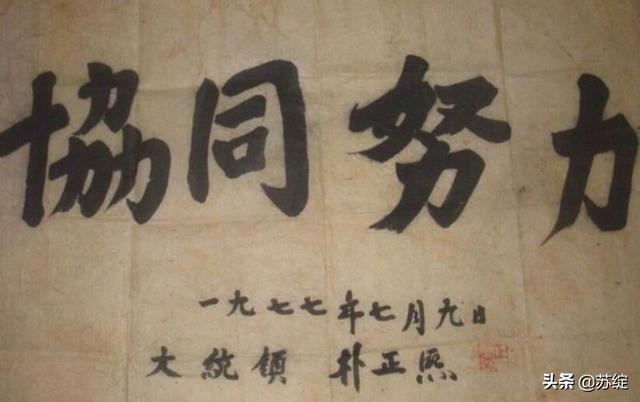 協同努力
一九七七年七月九日
大統領 朴正熙
头条@苏绽